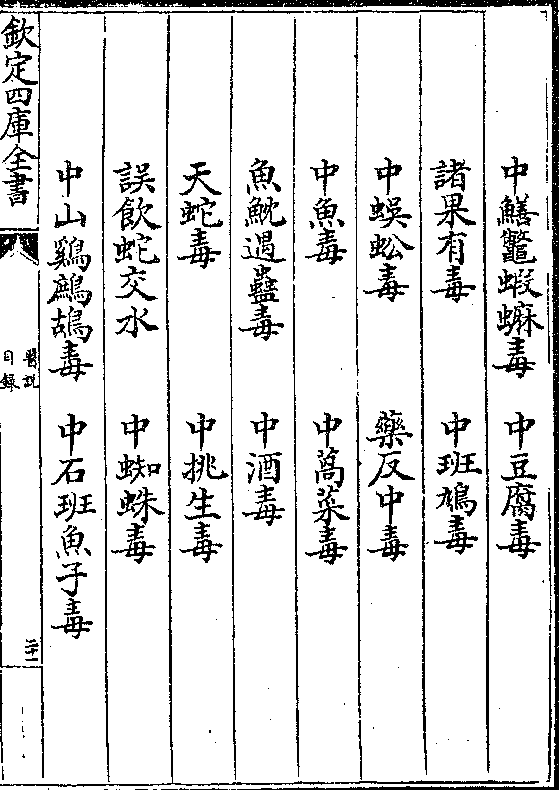 中鱔鼈蝦蟆毒　中豆腐毒
諸果有毒　中班鳩毒
中蜈蚣毒　藥反中毒
中魚毒　中萵菜毒
魚魷遇蠱毒　中酒毒
天蛇毒　中挑生毒
誤飲蛇交水　中蜘蛛毒
中山鷄鷓鴣毒　中石班魚子毒
欽定四庫全書
醫説
目録
二十一